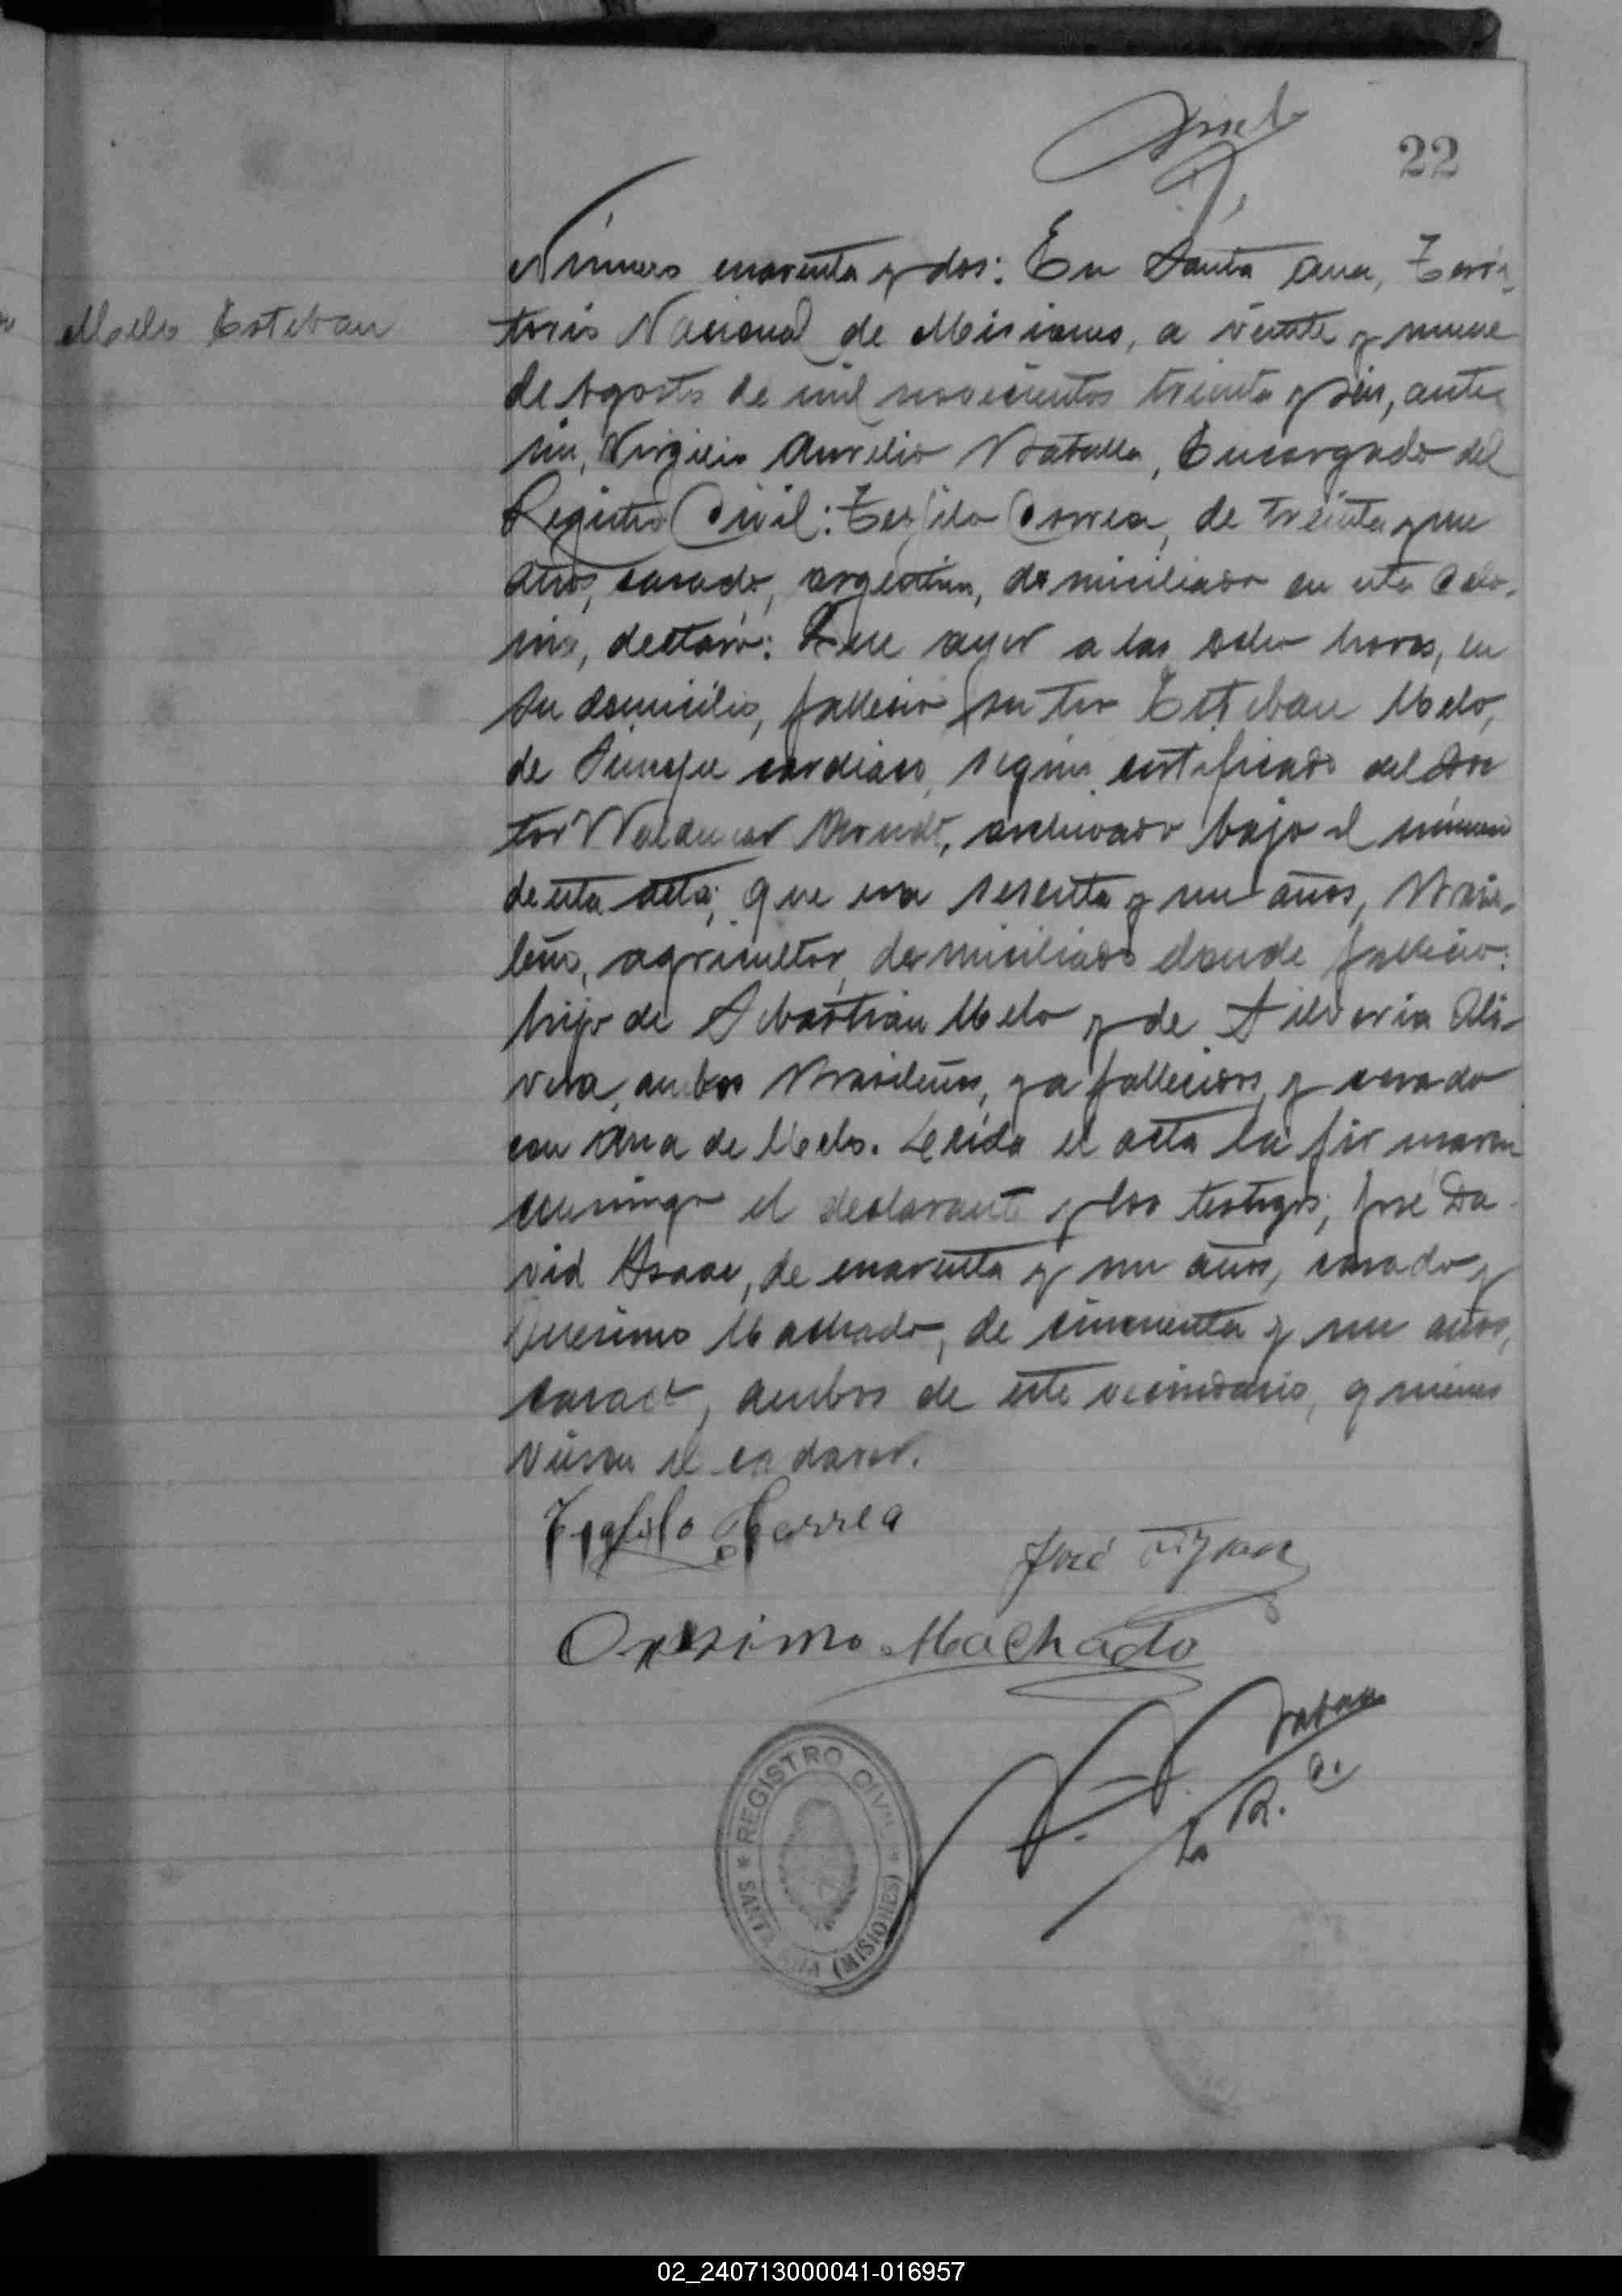 22
Número cuarenta y dos: En Santa Ana, Terri-
Melo Esteban
torio Nacional de Misiones, a veinte y nueve
de Agosto de mil novecientos treinta y seis, ante
mi, Virgilio Aurelio Batalla, Encargado del
Registro Civil: Teofilo Correa, de treinta y un
años, casado, argentino, domiciliado en esta Colo-
nia, declaró: Que ayer a las ocho horas, en
su domicilio, falleció su tio Esteban Melo,
de Sincope cardiaco, según certificado del Doc
tor Waldemar Arndt, archivado bajo el número
de esta acta; que era sesenta y un años, Brasi-
leño, agricultor, domiciliado donde falleció:
hijo de Sebastián Melo y de Silveria Oli-
vera, ambos Brasileños, ya fallecidos, y casado
con Ana de Melo. Leida el acta la firmaron
conmigo el declarante y los testigos; José Da-
vid Isaac, de cuarenta y un años, casado y
Onesimo Machado, de cincuenta y un años,
casado, ambos de este vecindario, quienes
vieron el cadaver.
Teofilo Correa
José Isaac
Onesimo Machado
R. C.
* REGISTRO CIVIL *
SANTA ANA (MISIONES)
02_240713000041-016957